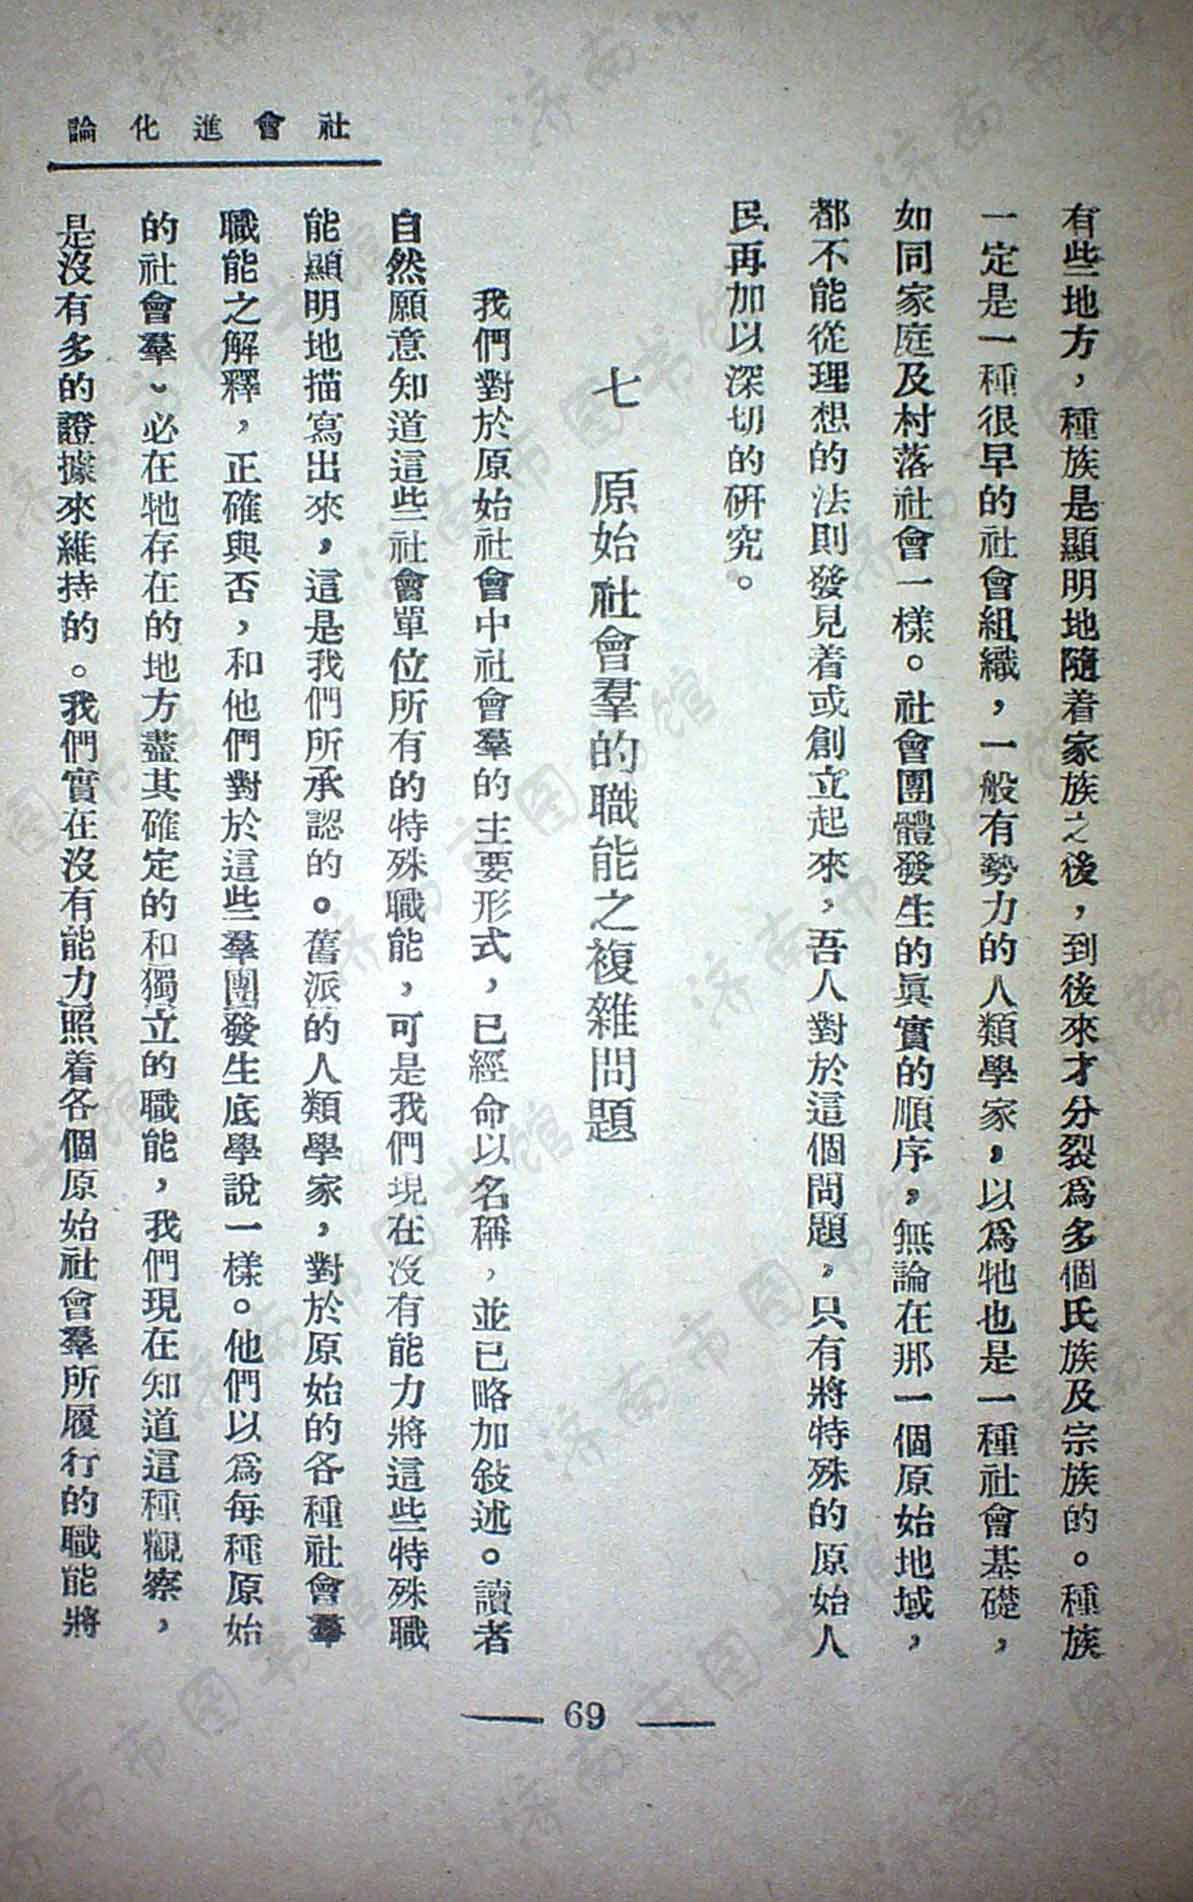 社會進化論
有些地方，種族是顯明地隨着家族之後，到後來才分裂爲多個氏族及宗族的。種族
一定是一種很早的社會組織，一般有勢力的人類學家，以爲牠也是一種社會基礎，
如同家庭及村落社會一樣。社會團體發生的眞實的順序，無論在那一個原始地域，
都不能從理想的法則發見着或創立起來，吾人對於這個問題，只有將特殊的原始人
民再加以深切的研究。
七　原始社會羣的職能之複雜問題
我們對於原始社會中社會羣的主要形式，已經命以名稱，並已略加敍述。讀者
自然願意知道這些社會單位所有的特殊職能，可是我們現在沒有能力將這些特殊職
能顯明地描寫出來，這是我們所承認的。舊派的人類學家，對於原始的各種社會羣
職能之解釋，正確與否，和他們對於這些羣團發生底學說一樣。他們以爲每種原始
的社會羣、必在牠存在的地方盡其確定的和獨立的職能，我們現在知道這種觀察，
是沒有多的證據來維持的。我們實在沒有能力照着各個原始社會羣所履行的職能將
— 69 —
济南市图书馆